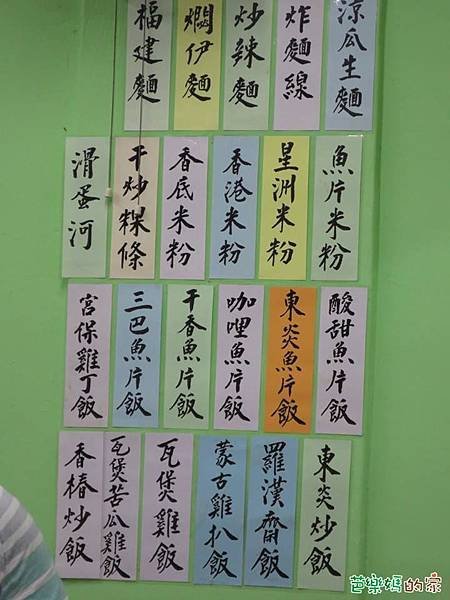 涼瓜生麵
炸麵線
炒辣麵
燜伊麵
福建麵
魚片米粉
星洲米粉
香港米粉
香底米粉
干炒粿條
滑蛋河
酸甜魚片飯
東炎魚片飯
咖哩魚片飯
干香魚片飯
三巴魚片飯
宮保雞丁飯
東炎炒飯
羅漢齋飯
蒙古雞扒飯
瓦煲雞飯
瓦煲苦瓜雞飯
香椿炒飯
芭樂媽的家